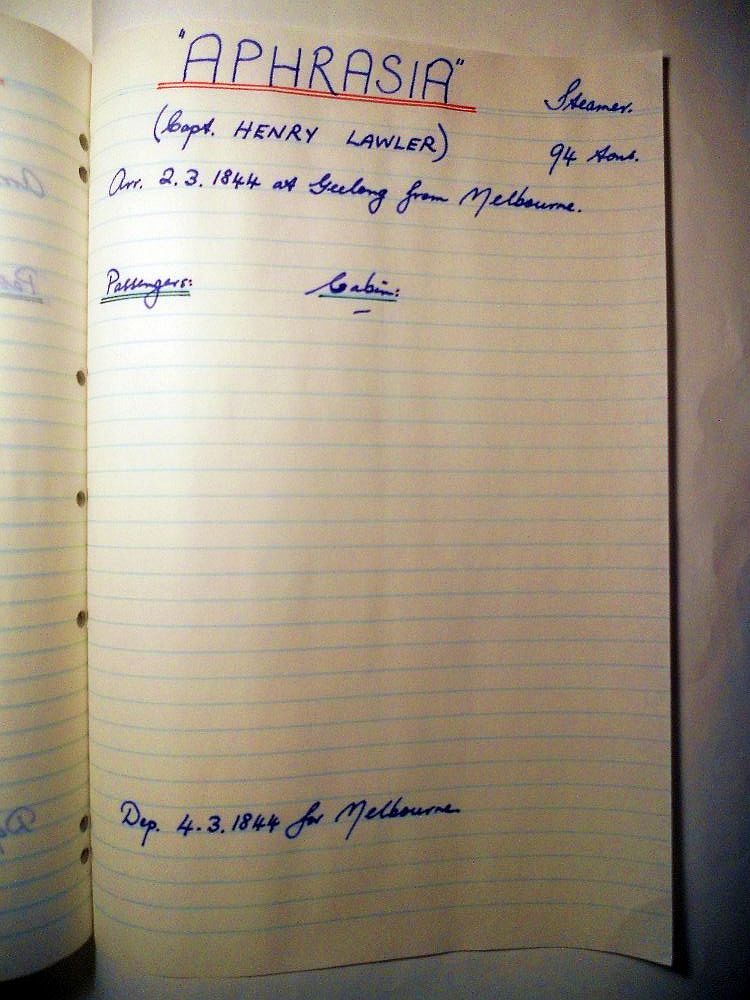 "APHRASIA"
Steamer.
(Capt. HENRY LAWLER)
94 tons.
Arr. 2.3.1844 at Geelong from Melbourne.
Passengers:
Cabin:
–
Dep. 4.3.1844 for Melbourne